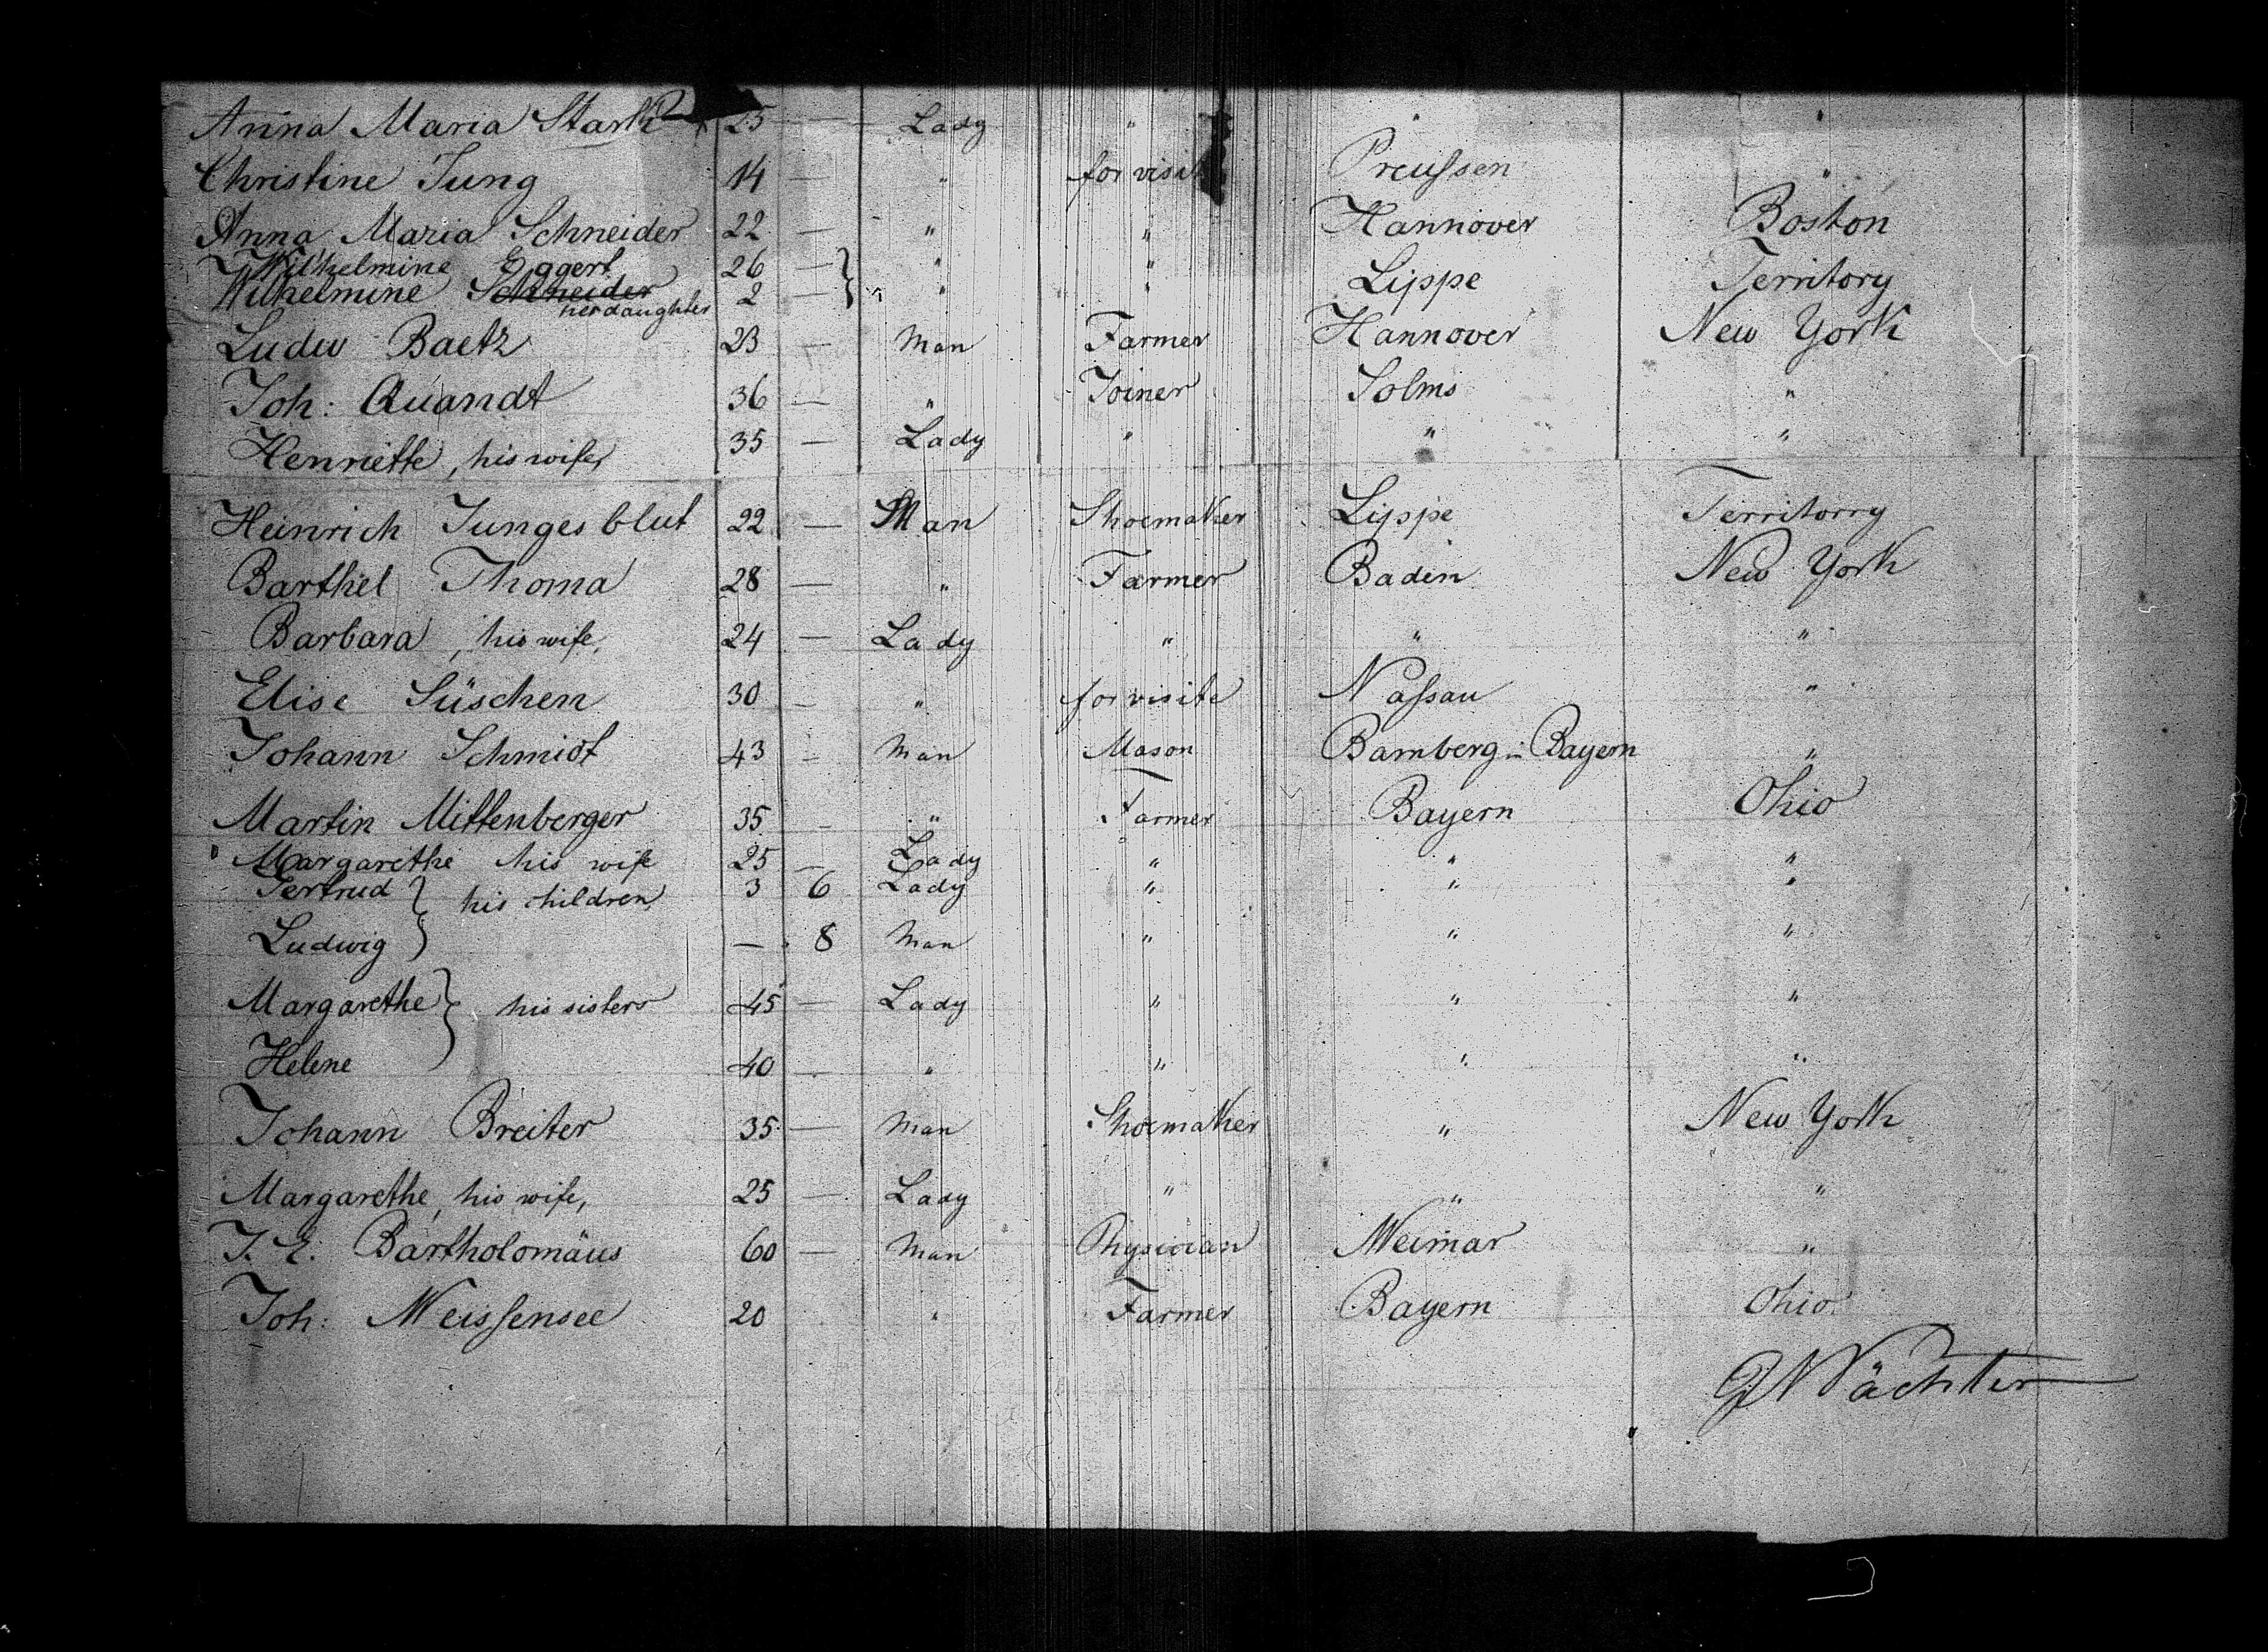 Anna Maria Stark 25 — Lady " " "
Christine Jung 14 — " for visit Preussen "
Anna Maria Schneider 22 — " " Hannover Boston
Wilhelmine Eggert 26 — } " " Lippe Territory
Wilhelmine Schneider her daughter 2 — " "
Ludw Baetz 23 — Man Farmer Hannover New York
Joh: Quandt 36 — " Joiner Solms "
Henriette, his wife, 35 — Lady " " "
Heinrich Jungesblut 22 — Man Shoemaker Lippe Territorry
Barthel Thoma 28 — " Farmer Baden New York
Barbara, his wife, 24 — Lady " " "
Elise Süschen 30 — " for visite Nassau "
Johann Schmidt 43 — Man Mason Bamberg in Bayern "
Martin Mittenberger 35 — " Farmer Bayern Ohio
Margarethe his wife 25 — Lady " " "
Gertrud } his children 3 6 Lady " " "
Ludwig } — 8 Man " " "
Margarethe } his sisters 45 — Lady " " "
Helene 40 — " " " "
Johann Breiter 35 — Man Shoemaker " New York
Margarethe, his wife, 25 — Lady " " "
J. E. Bartholomäus 60 — Man Physician Weimar "
Joh: Weissensee 20 " Farmer Bayern Ohio
G Wächter